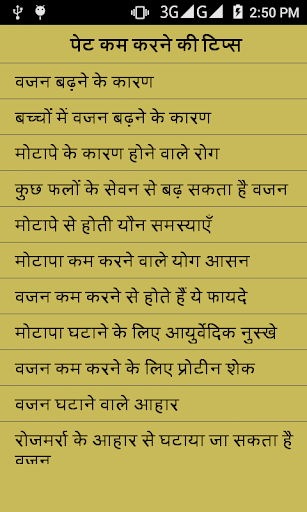 3G G 2:50 PM
पेट कम करने की टिप्स
वजन बढ़ने के कारण
बच्चों में वजन बढ़ने के कारण
मोटापे के कारण होने वाले रोग
कुछ फलों के सेवन से बढ़ सकता है वजन
मोटापे से होती यौन समस्याएँ
मोटापा कम करने वाले योग आसन
वजन कम करने से होते हैं ये फायदे
मोटापा घटाने के लिए आयुर्वेदिक नुस्खे
वजन कम करने के लिए प्रोटीन शेक
वजन घटाने वाले आहार
रोजमर्रा के आहार से घटाया जा सकता है
वजन